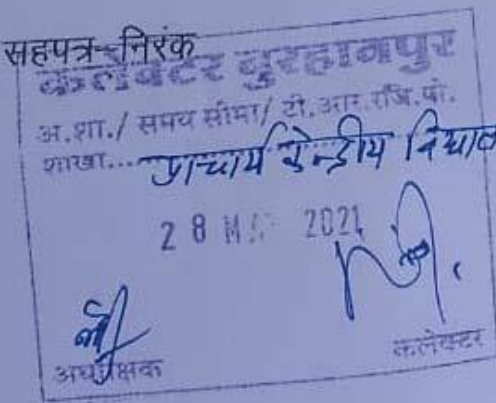 सहपत्र-निरंक
कलेक्टर बुरहानपुर
अ.शा./ समय सीमा/ टी.आर.रजि.पो.
शाखा... प्राचार्य केन्द्रीय विद्याल
28 MAR 2021
अधीक्षक
कलेक्टर